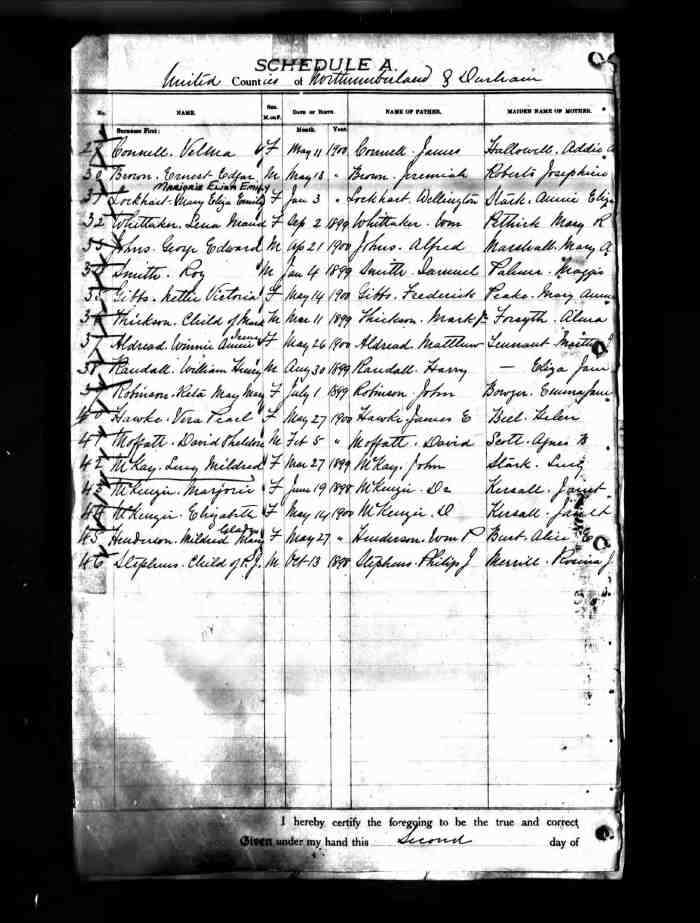 SCHEDULE A.
United Counties of Northumberland & Durham
No. NAME. Sex. M. or F. Date of Birth. NAME OF FATHER. MAIDEN NAME OF MOTHER.
Surname First: Month. Year.
Connell. Velma F May 11 1900 Connell. James Hallowell. Addie
30 Brown. Ernest Edgar M May 13 " Brown. Jeremiah Roberts Josephine
Marjorie Emily
31 Lockhart. Mary Eliza F Jan 3 " Lockhart. Wellington Stark. Annie Eliza
32 Whittaker. Lena Maud F Sep 2 1899 Whittaker. Wm Pethick Mary R
33 Johns. George Edward M Apl 21 1900 Johns. Alfred Marshall. Mary A
34 Smith. Roy M Jan 4 1899 Smith. Samuel Palmer. Maggie
35 Gibbs. Nettie Victoria F May 14 1900 Gibbs. Frederick Peake. Mary Annie
36 Thickson. Child of Mark M Mar 11 1899 Thickson. Mark Jr Forsyth. Alma
37 Aldread. Winnie Annie F May 26 1900 Aldread. Matthew Tennant. Martha
38 Randall. William Henry M Aug 30 1899 Randall. Harry — Eliza Jane
39 Robinson. Reta May F July 1 1899 Robinson. John Bowzer. Emma Jane
40 Hawke. Vera Pearl F May 27 1900 Hawke James E Beel. Helen
41 Moffatt. David Sheldon M Feb 5 " Moffatt. David Scott. Agnes B
42 McKay. Lucy Mildred F Mar 27 1899 McKay. John Stark. Lucy
43 McKenzie. Marjorie F June 19 1898 McKenzie. Dr Kersall. Janet
44 McKenzie. Elizabeth F May 14 1900 McKenzie. D Kersall. Janet
Gladys
45 Henderson. Mildred Mary F May 27 " Henderson. Wm P Burt. Alice E
46 Stephens. Child of P.J. M Oct 13 1898 Stephens. Philip J Merrill. Rosina J
I hereby certify the foregoing to be the true and correct
Given under my hand this Second day of